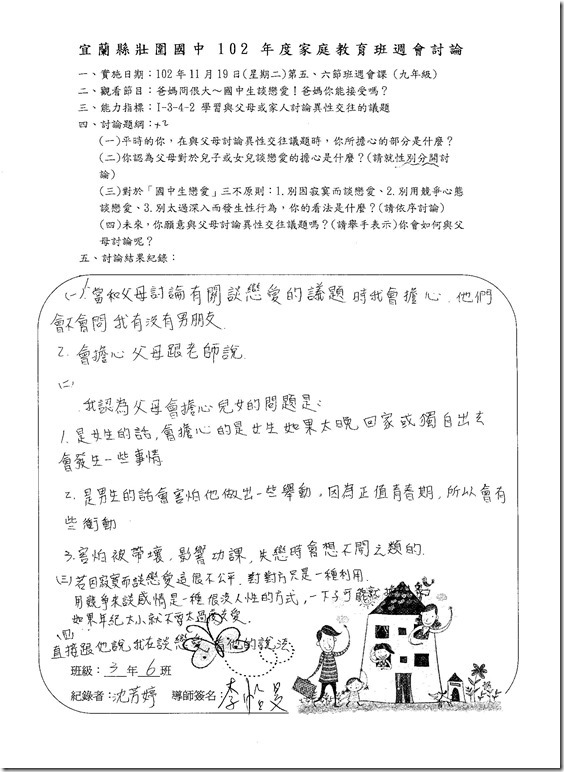 宜蘭縣壯圍國中 102 年度家庭教育班週會討論
一、實施日期：102年11月19日(星期二)第五、六節班週會課（九年級）
二、觀看節目：爸媽冏很大～國中生談戀愛！爸媽你能接受嗎？
三、能力指標：1-3-4-2 學習與父母或家人討論異性交往的議題
四、討論題綱：+2
(一)平時的你，在與父母討論異性交往議題時，你所擔心的部分是什麼？
(二)你認為父母對於兒子或女兒談戀愛的擔心是什麼？(請就性別分開討
論)
(三)對於「國中生戀愛」三不原則：1.別因寂寞而談戀愛、2.別用競爭心態
談戀愛、3.別太過深入而發生性行為，你的看法是什麼？(請依序討論)
(四)未來，你願意與父母討論異性交往議題嗎？(請舉手表示)你會如何與父
母討論呢？
五、討論結果紀錄：
(一)1.當和父母討論有關談戀愛的議題時我會擔心.他們
會不會問我有沒有男朋友.
2.會擔心父母跟老師說.
(二)
我認為父母會擔心兒女的問題是:
1.是女生的話,會擔心的是女生如果太晚回家或獨自出去
會發生一些事情
2.是男生的話會害怕他做出一些舉動,因為正值青春期,所以會有
些衝動
3.害怕被帶壞,影響功課,失戀時會想不開之類的.
(三)若因寂寞而談戀愛這很不公平.對對方只是一種利用.
用競爭來談感情是一種很沒人性的方式,一下子可能
如果年紀太小就不要太過
(四)
直接跟他說我在談戀愛 看他的說法.
班級：3 年 6 班
紀錄者：沈芳婷 導師簽名：李怡曼